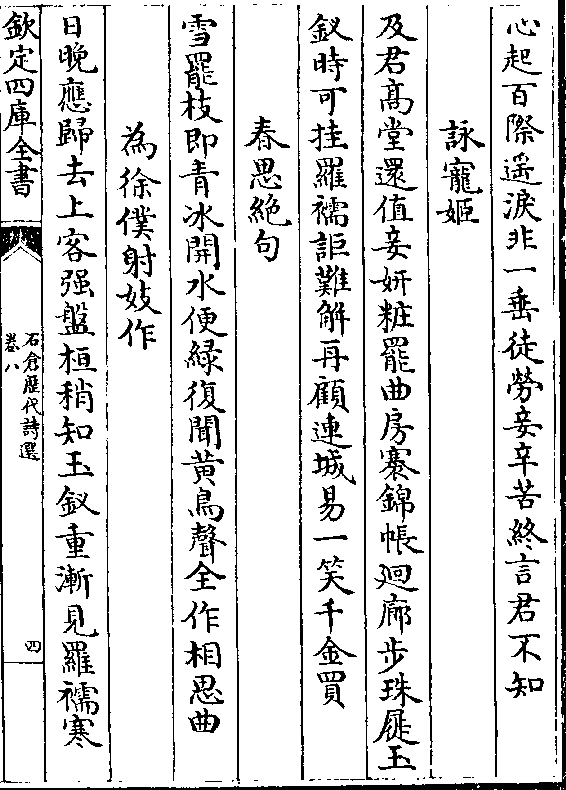 心起百際遥淚非一垂徒勞妾辛苦終言君不知
詠寵姬
及君髙堂還值妾妍粧罷曲房褰錦帳廻廊步珠屣玉
釵時可挂羅襦詎難解再顧連城易一笑千金買
春思絶句
雪罷枝即青冰開水便緑復聞黄鳥聲全作相思曲
為徐僕射妓作
日晚應歸去上客强盤桓稍知玉釵重漸見羅襦寒
欽定四庫全書
石倉歴代詩選
卷八
四